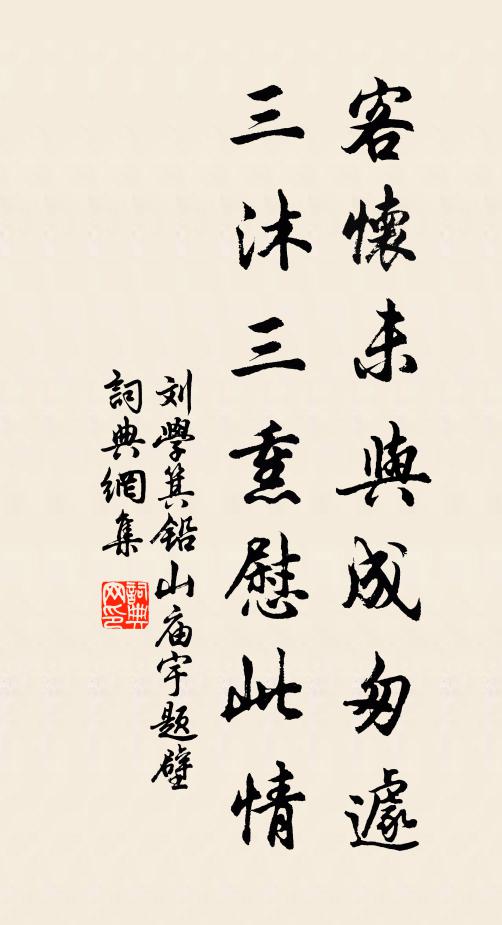 客懷未與成匆遽
三沐三熏慰此情
刘學箕鉛山庙宇題壁
詞典網集
詞典网印